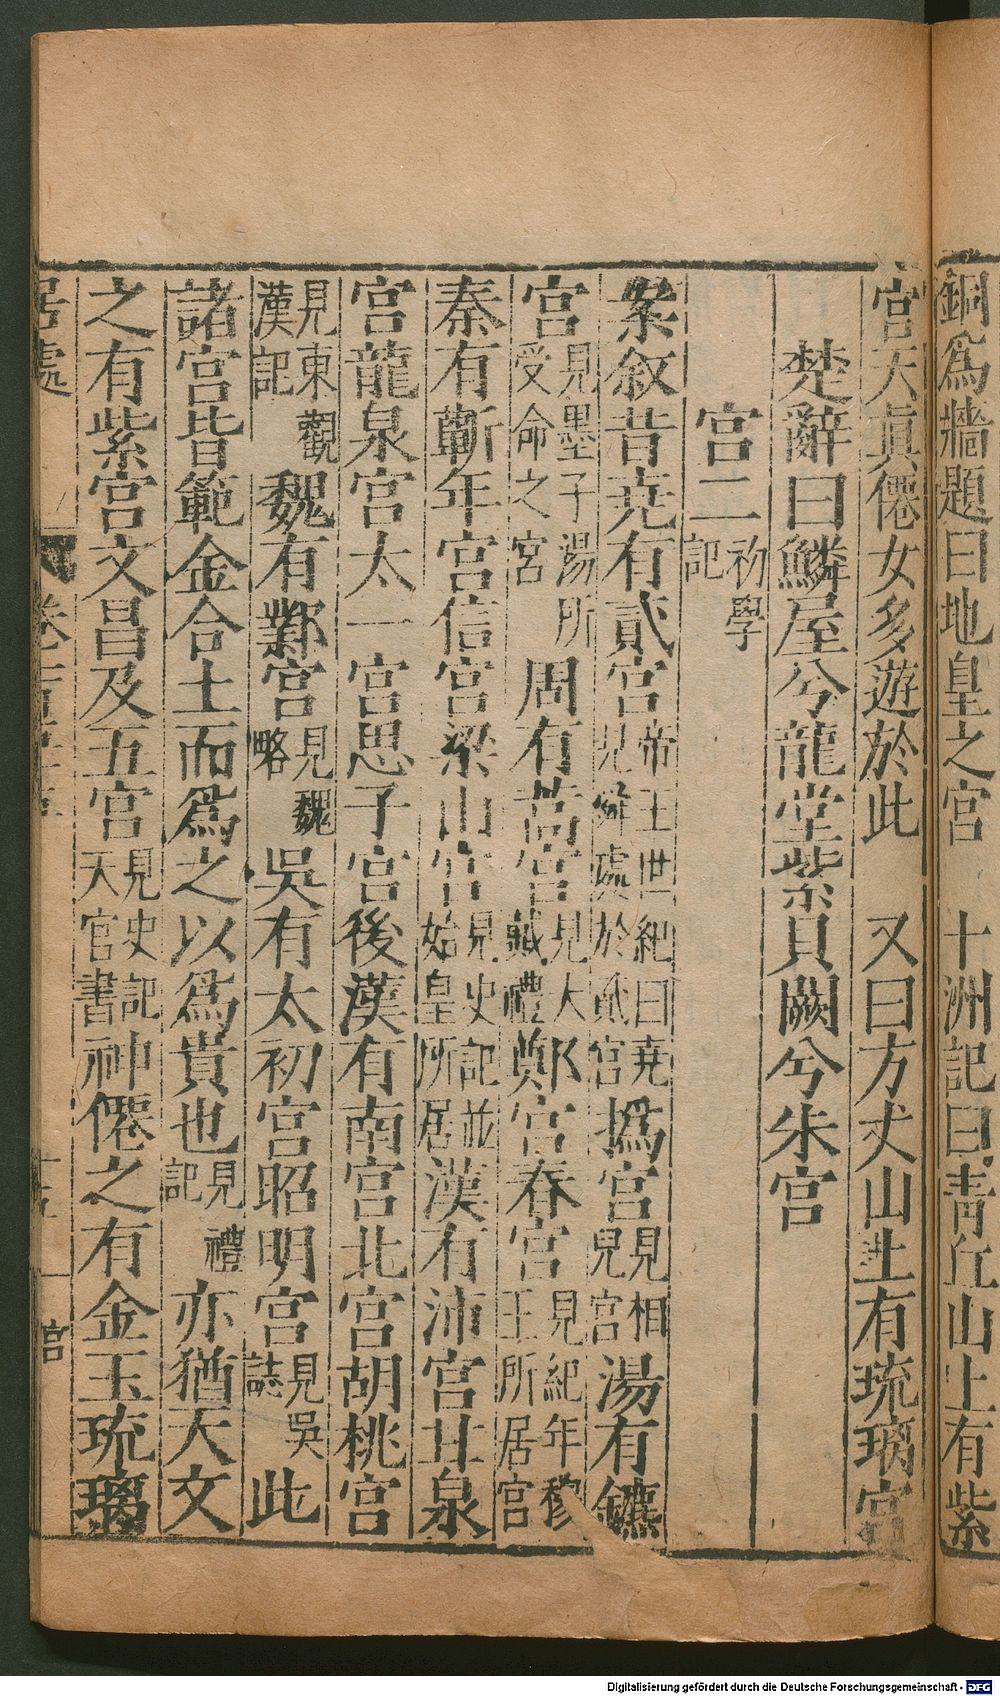 銅為牆題曰地皇之宮 十洲記曰青丘山上有紫
宮天真僊女多遊於此 又曰方丈山上有琉璃宮
楚辭曰鱗屋兮龍堂紫貝闕兮朱宮
宮二初學記
案敘昔堯有貳宮帝王世紀曰堯見舜處於貳宮撝宮見相兒宮湯有鑣
宮見墨子湯所受命之宮周有蒿宮見大戴禮鄭宮春宮見紀年穆王所居宮
秦有蘄年宮信宮梁山宮見史記並始皇所居漢有沛宮甘泉
宮龍泉宮太一宮思子宮後漢有南宮北宮胡桃宮
見東觀漢記魏有鄴宮見魏略吳有太初宮昭明宮見吳誌此
諸宮皆範金合土而為之以為貴也見禮記亦猶天文
之有紫宮文昌及五宮見史記天官書神僊之有金玉琉璃
居處
十五
宮
Digitalisierung gefördert durch die Deutsche Forschungsgemeinschaft - DFG